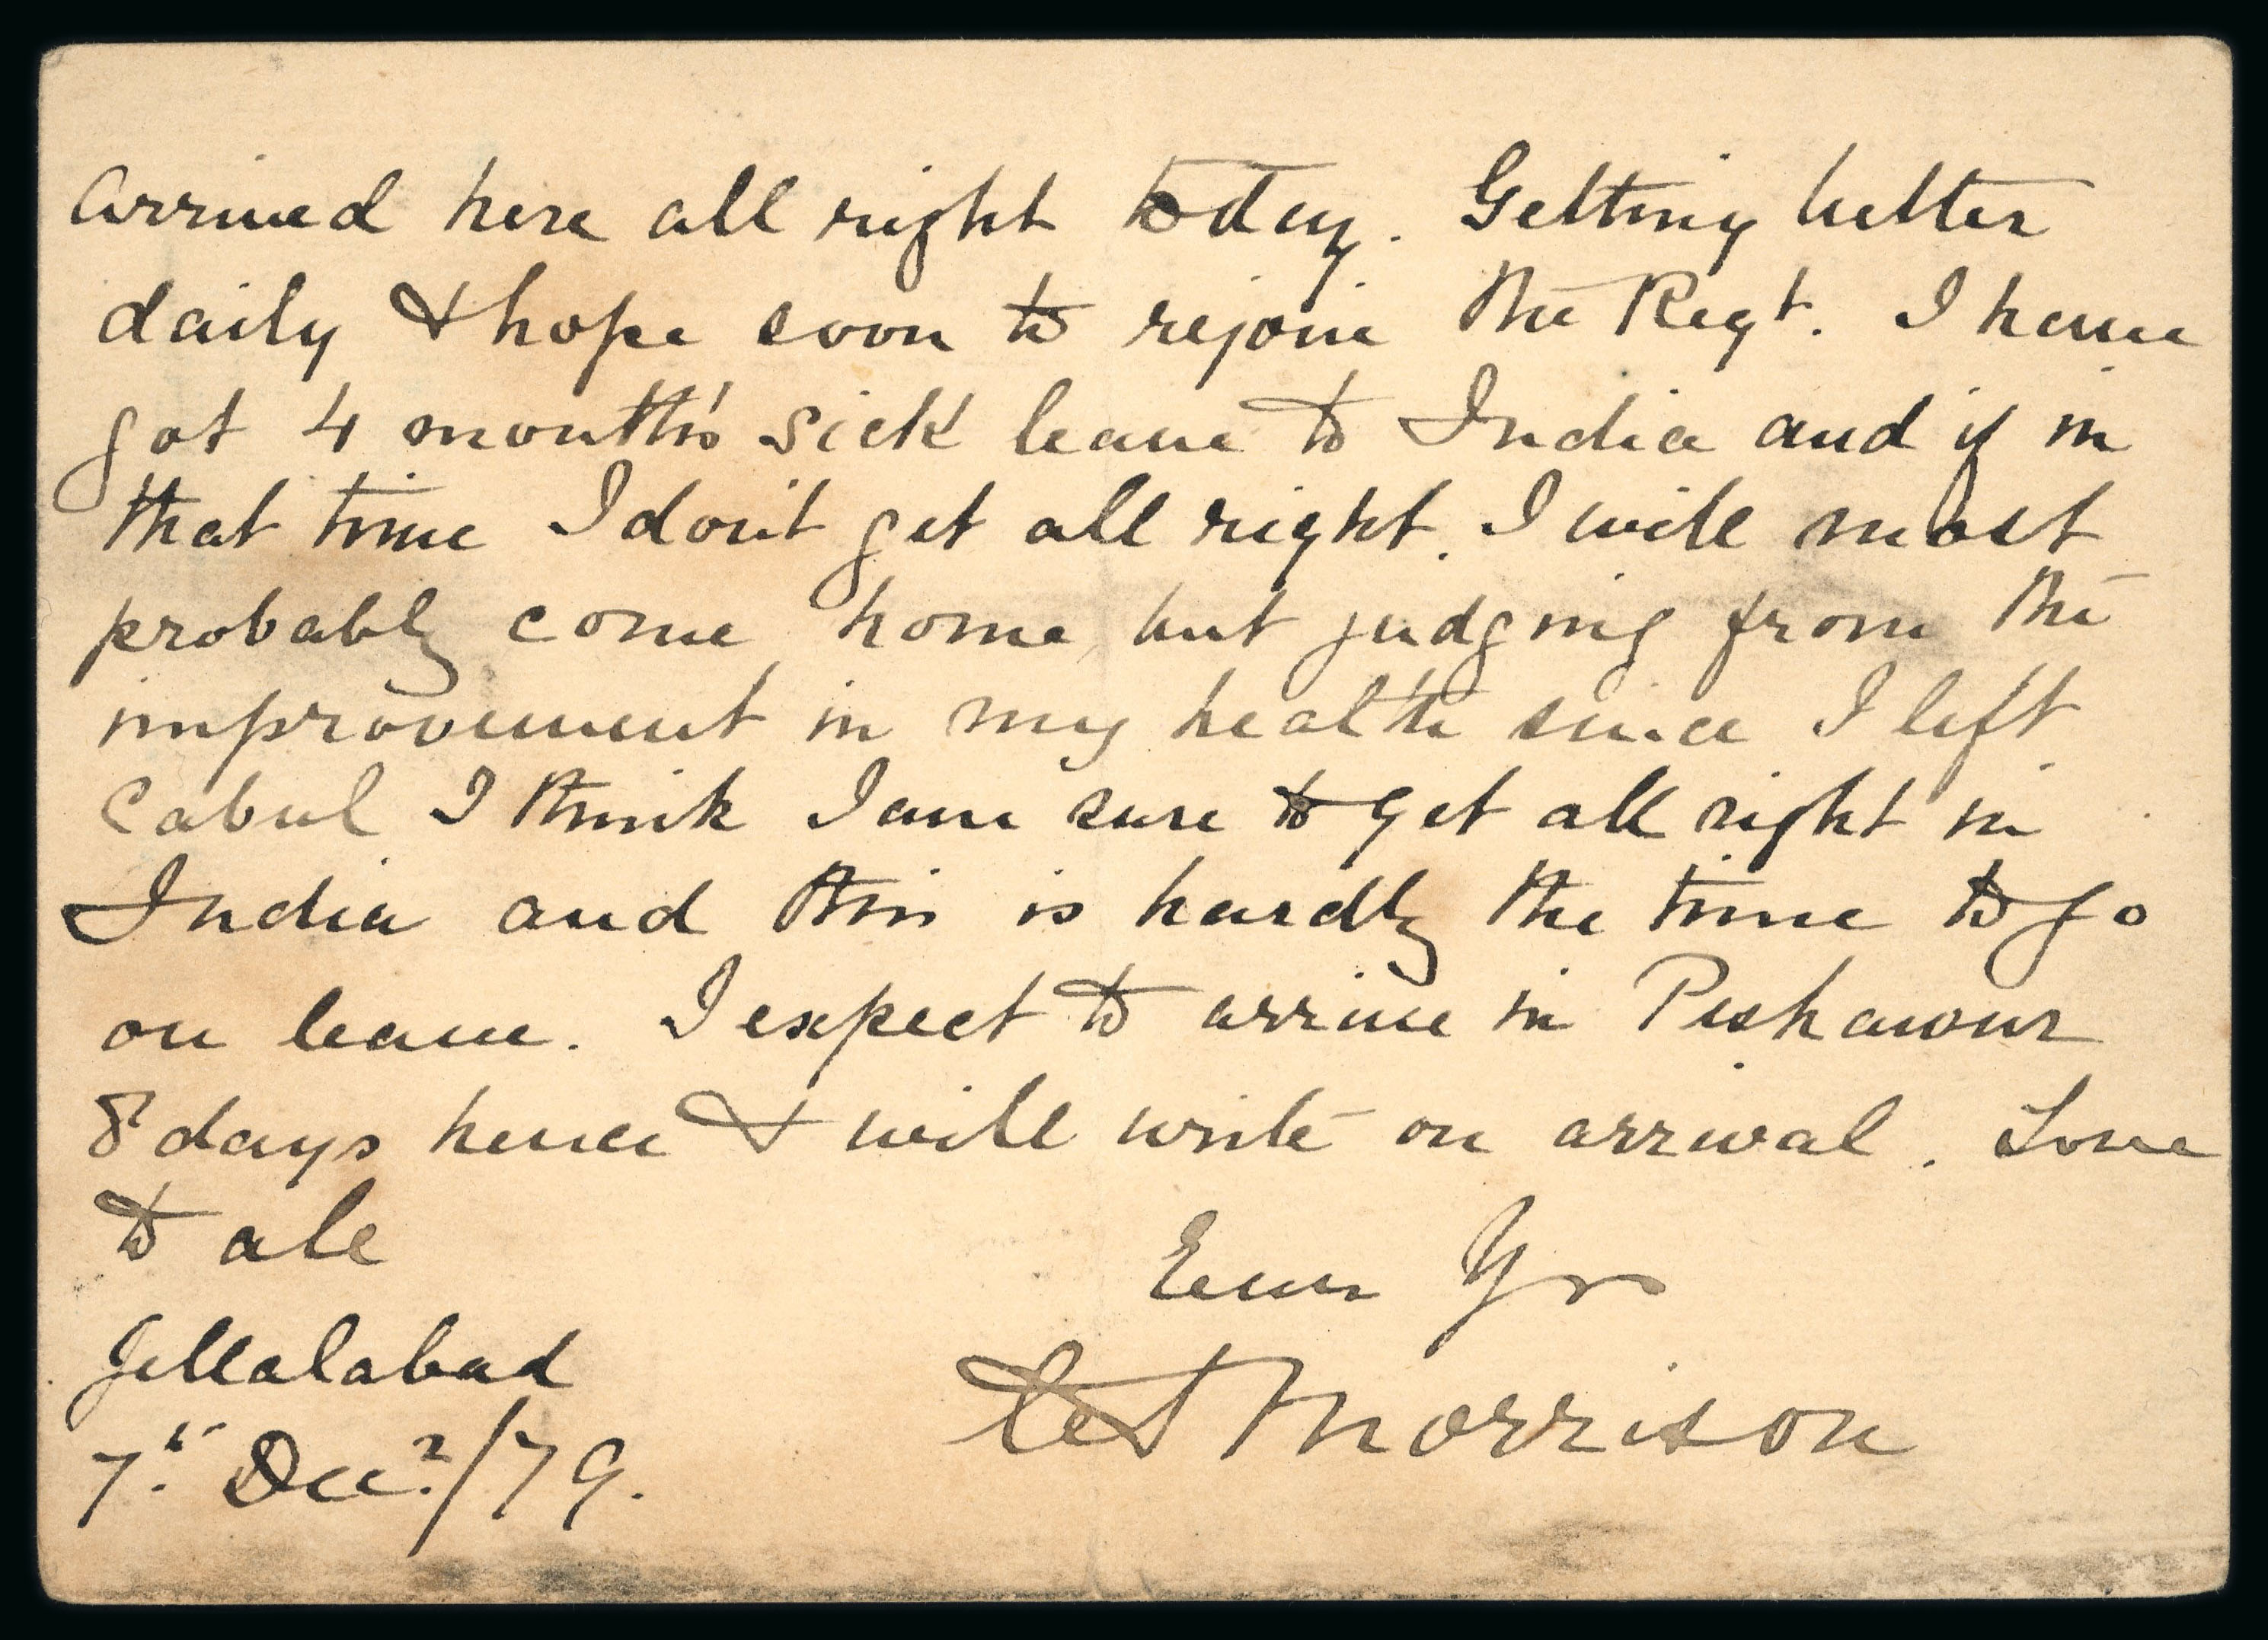 Arrived here all right today. Getting better
daily & hope soon to rejoin the Regt. I have
got 4 month's sick leave to India and if in
that time I don't get all right. I will most
probably come home, but judging from the
improvement in my health since I left
Cabul I think I am sure to get all right in
India and this is hardly the time to go
on leave. I expect to arrive in Peshawur
8 days hence & will write on arrival. Love
to all
Ever Yrs
Morrison
Jellalabad
7th Decr/79.